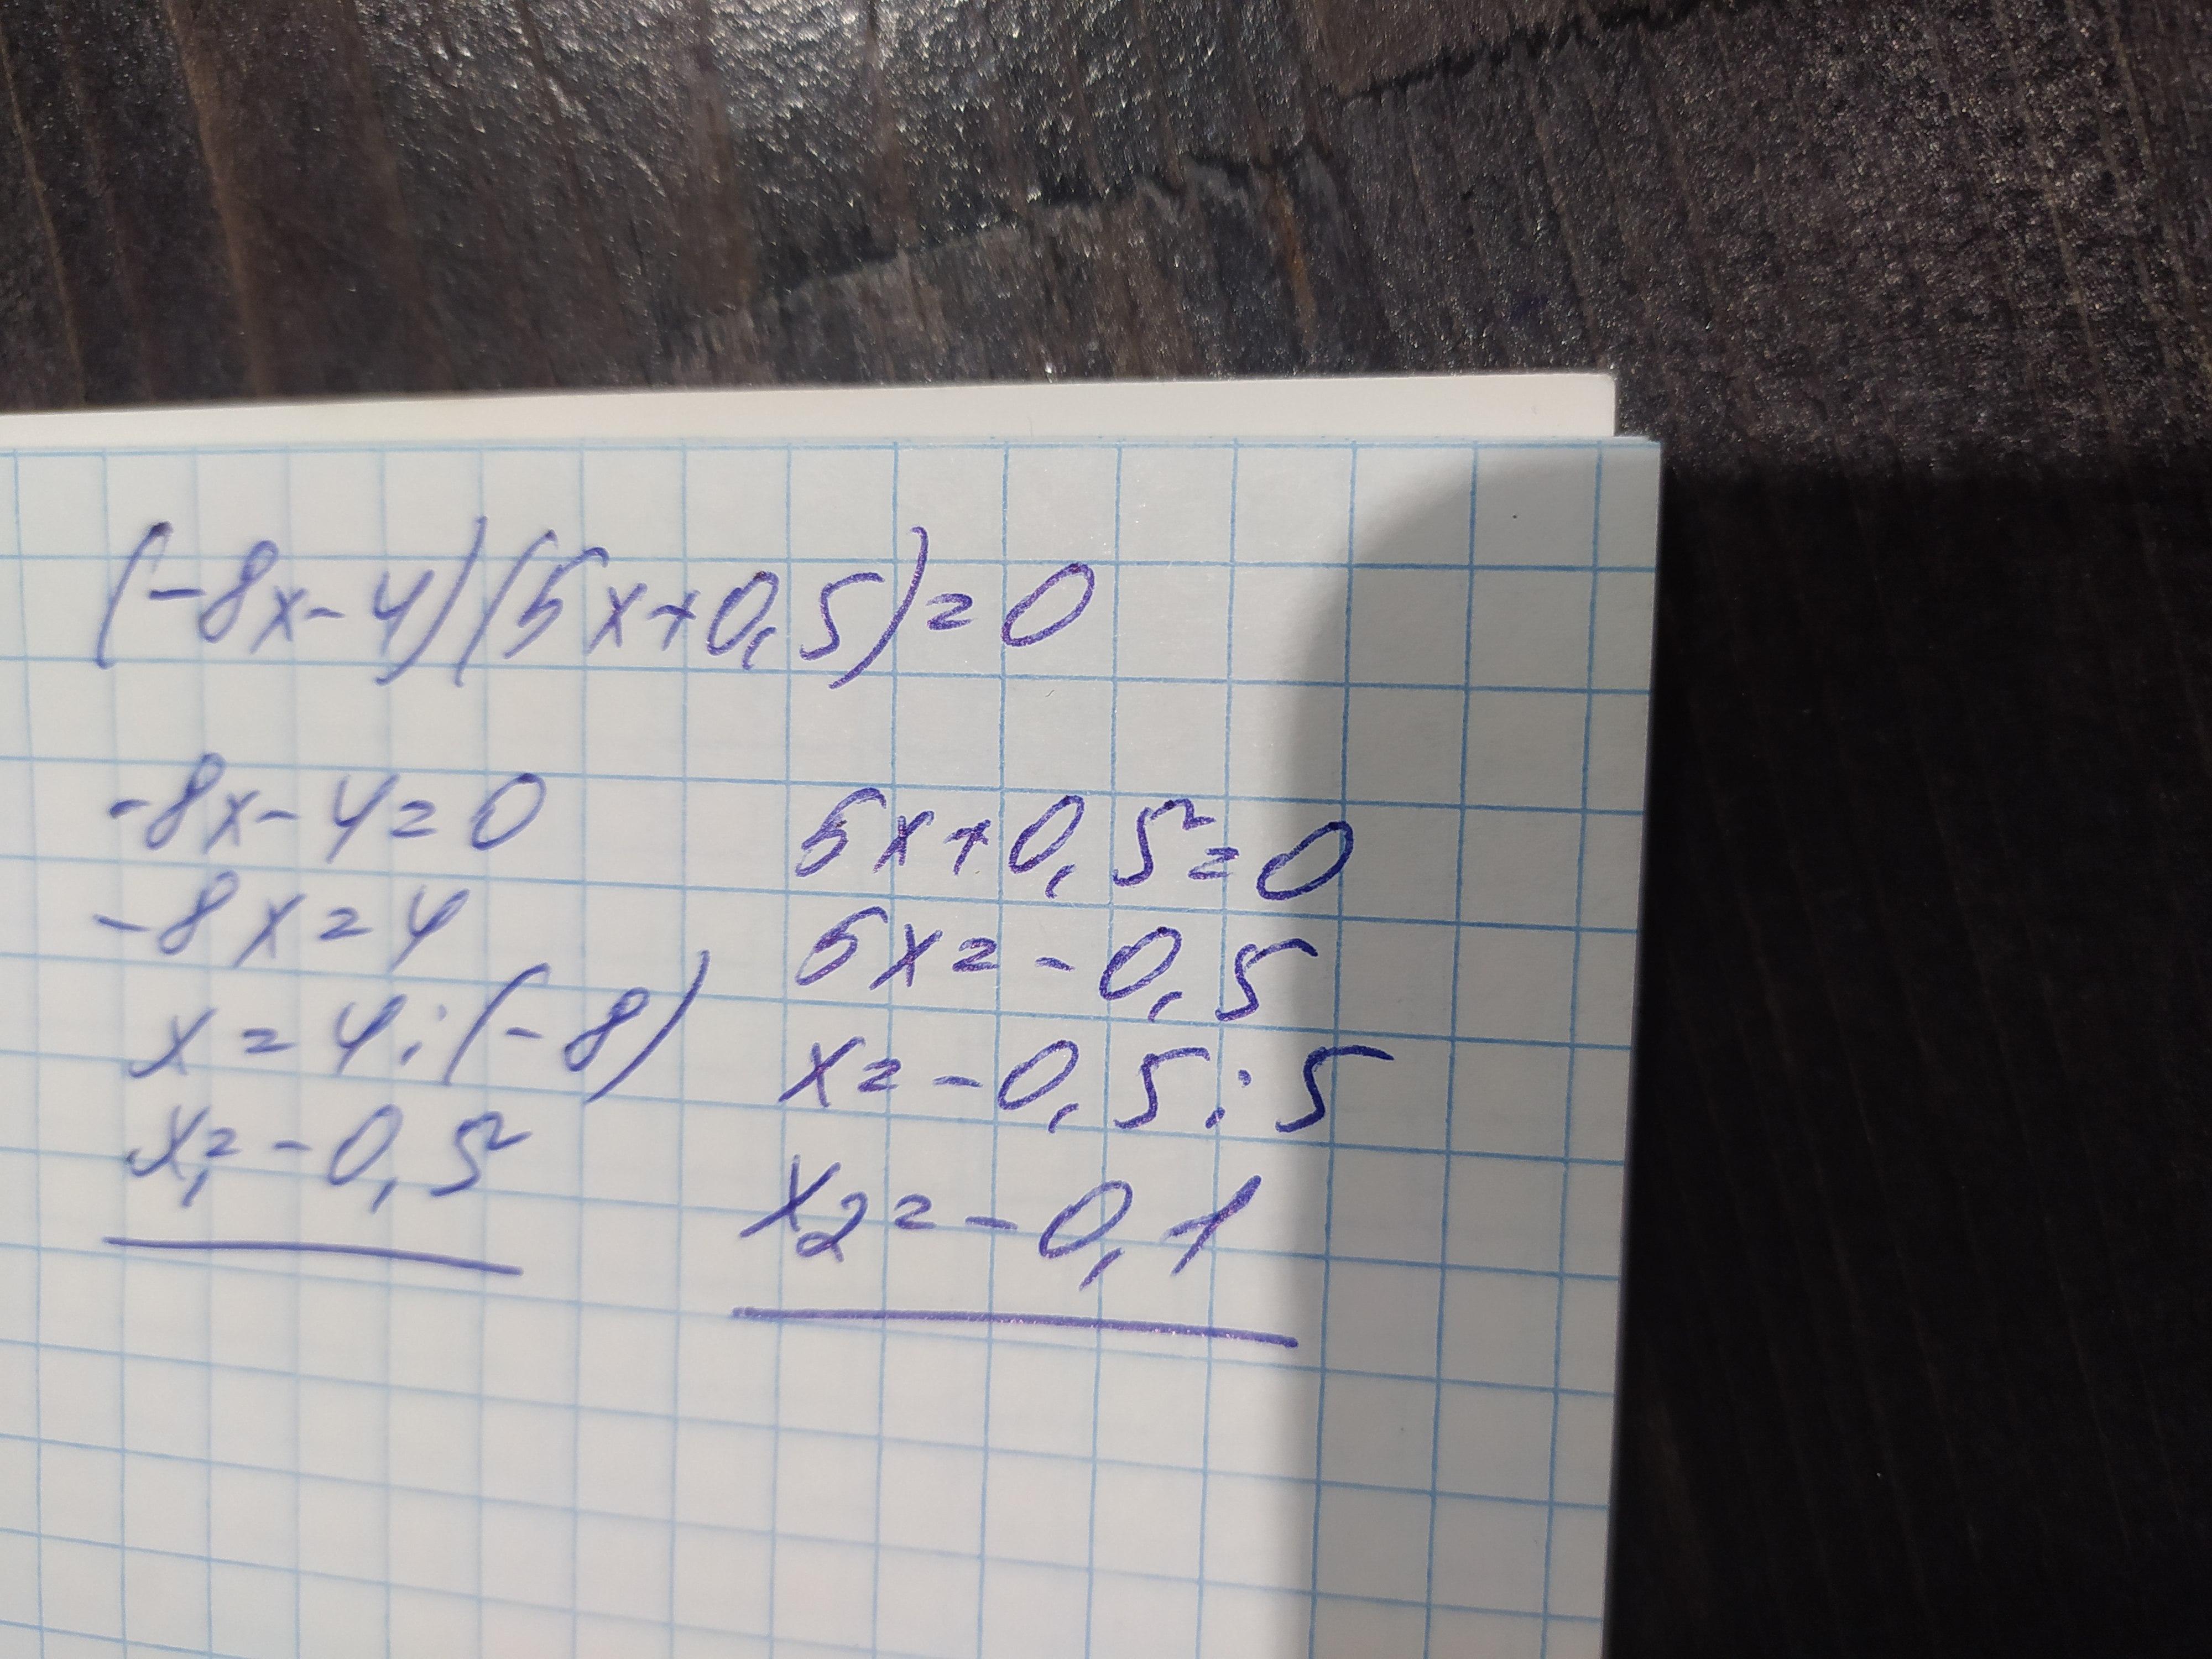 (-8x-4)(5x+0,5)=0
-8x-4=0
-8x=4
x=4:(-8)
x₁=-0,5
5x+0,5=0
5x=-0,5
x=-0,5:5
x₂=-0,1